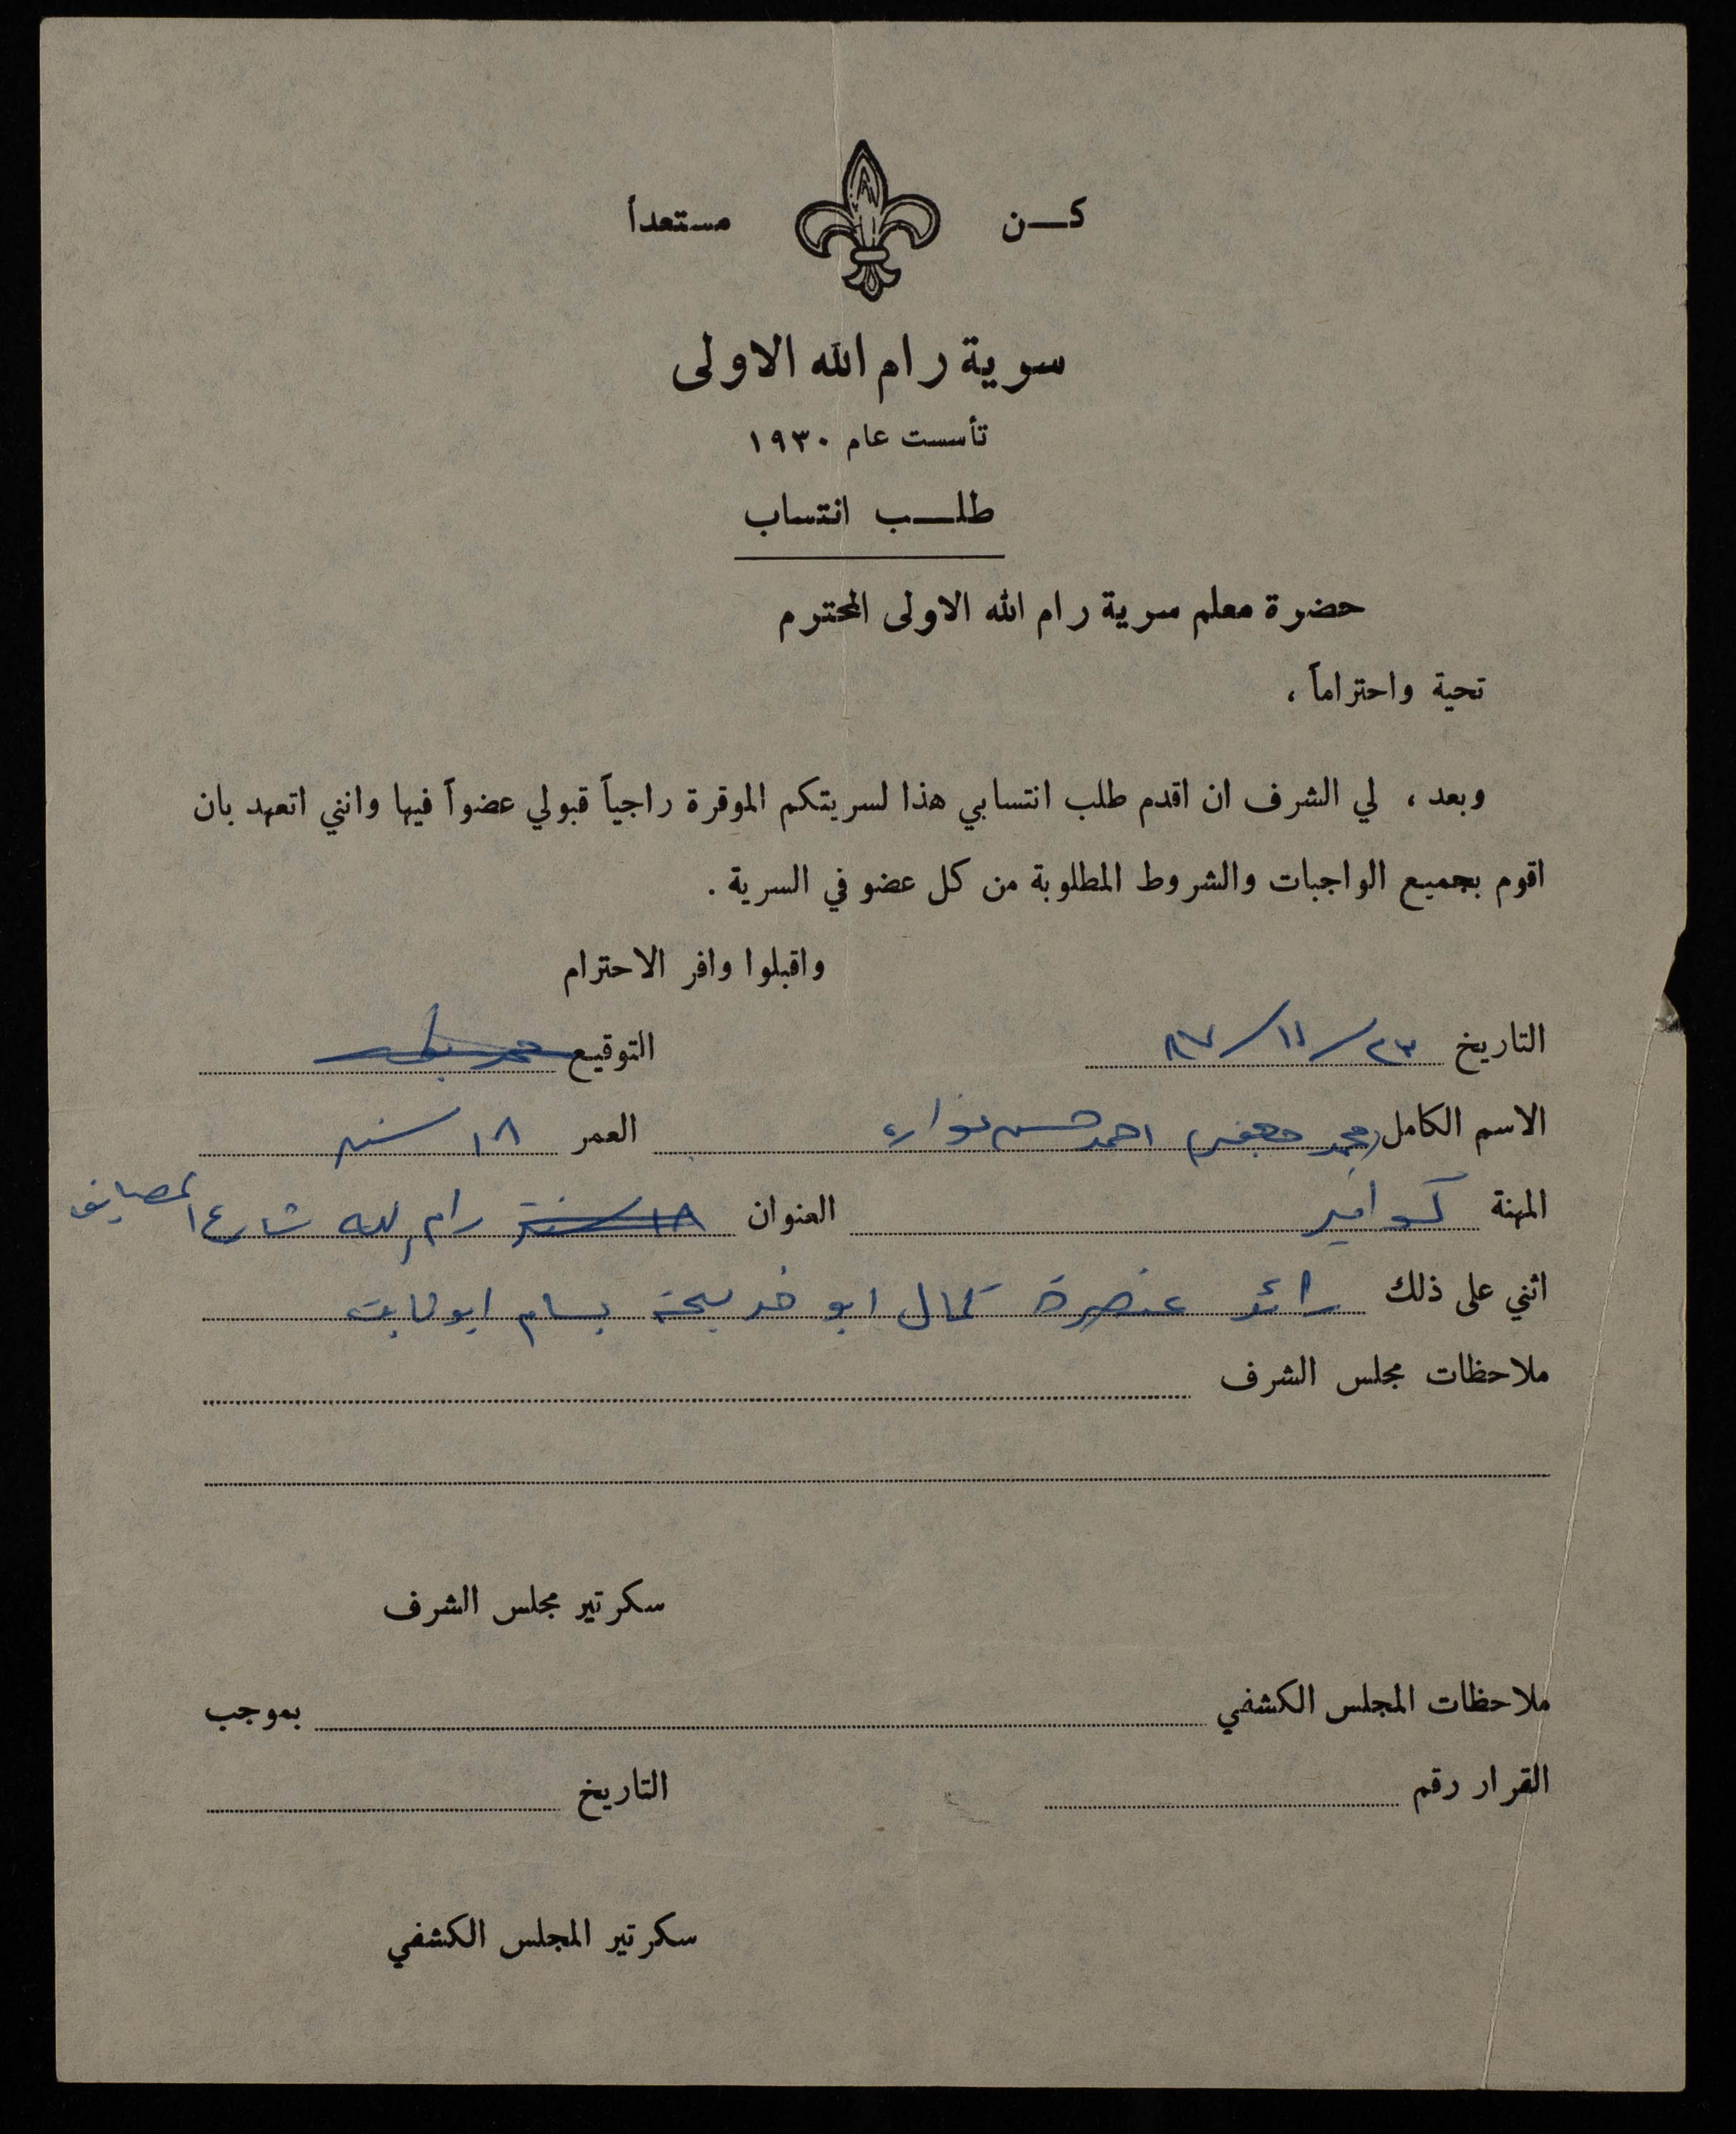 كـــن مستعداً
سرية رام الله الاولى
تأسست عام ١٩٣٠
طلـــب انتساب
حضرة معلم سرية رام الله الاولى المحترم
تحية واحتراماً ،
وبعد ، لي الشرف ان اقدم طلب انتسابي هذا لسريتكم الموقرة راجياً قبولي عضواً فيها وانني اتعهد بان
اقوم بجميع الواجبات والشروط المطلوبة من كل عضو في السرية .
واقبلوا وافر الاحترام
التاريخ ٢٣/١١/٨٧ التوقيع
الاسم الكامل (محمد جعفر) احمد حسن العمر ١٨ سنة
المهنة كوافير العنوان ١٨ سنة رام الله شارع المصايف
اثني على ذلك رائد عنصرة كمال ابو خديجة بسام ابو
ملاحظات مجلس الشرف
سكرتير مجلس الشرف
ملاحظات المجلس الكشفي بموجب
القرار رقم التاريخ
سكرتير المجلس الكشفي